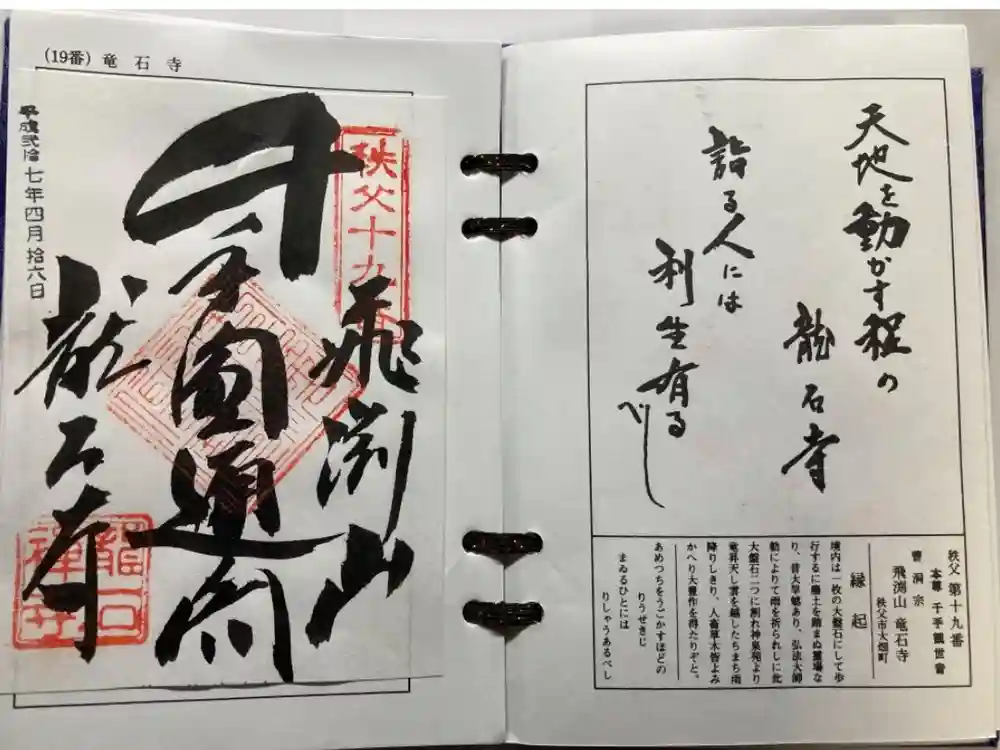 (19番) 竜石寺
平成弐拾七年四月拾六日
秩父十九番
飛渕山
千手圓通閣
龍石寺
龍石禅寺
天地を動かす程の
龍石寺
詣る人には
利生有る
べし
秩父 第十九番
本尊 千手観世音
曹洞宗
飛渕山 竜石寺
秩父市大畑町
縁起
境内は一枚の大盤石にして歩
行するに塵土を踏まぬ霊場な
り、昔大旱魃あり、弘法大師
勅によりて雨を祈られしに此
大盤石二つに割れ神泉苑より
竜昇天し雲を越したちまち雨
降りしきり、人畜草木皆よみ
かへり大豊作を得たりぞと。
あめつちをうごかすほどの
りうせきじ
まゐるひとには
りしゃうあるべし